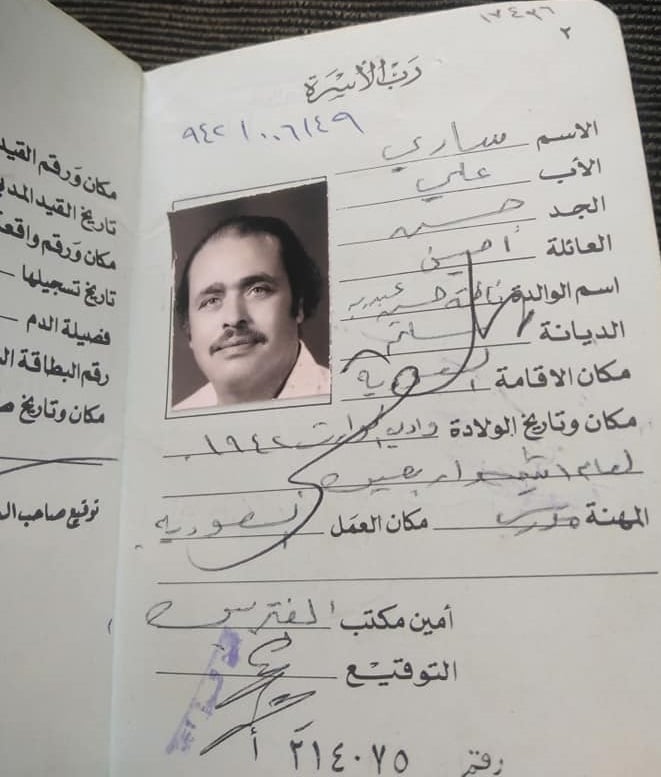 ١٧٤٣٦
٢
رَبّ الأسْرَة
٩٤٢١٠٠٦١٤٩
الاسم ساري
الأب علي
الجد حسين
العائلة أمين
اسم الوالدة حسن
الديانة مسلم
مكان الاقامة السعودية
مكان وتاريخ الولادة ١٩٤٢
لعام اثنين واربعين
المهنة مدرس مكان العمل السعودية
أمين مكتب
التوقيع
رقم ٢١٤٠٧٥ أ
مكان ورقم القيد
تاريخ القيد المدني
مكان ورقم واقعة
تاريخ تسجيلها
فصيلة الدم
رقم البطاقة
مكان وتاريخ
توقيع صاحب